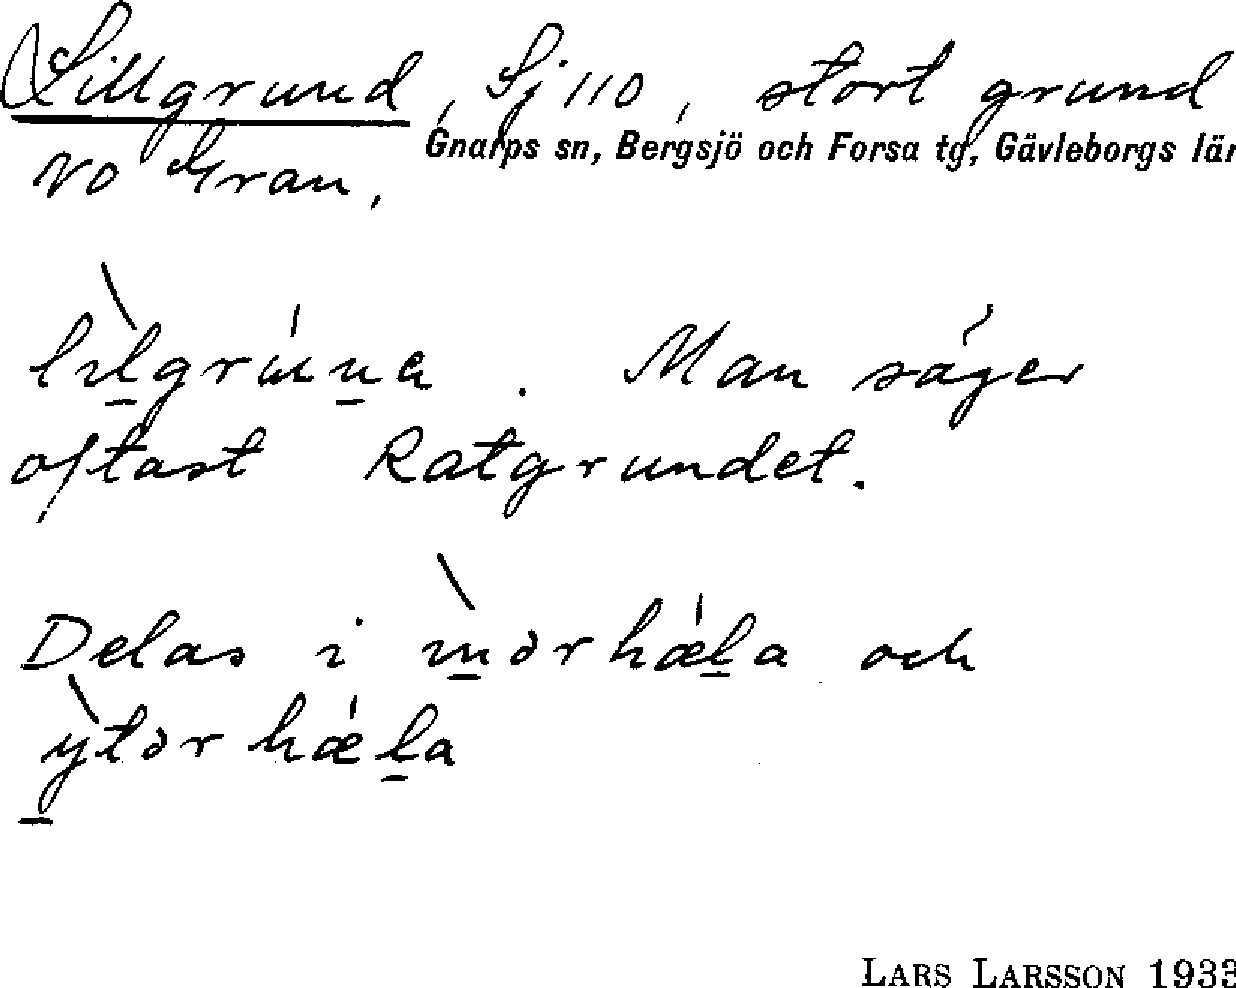 Lillgrund, Sj 110, stort grund
Gnarps sn, Bergsjö och Forsa tg, Gävleborgs län
no Gran.
lılgrúna. Man säger
oftast Ratgrundet.
Delas i ìnərhǽla och
ỳtərhǽla
LARS LARSSON 1933